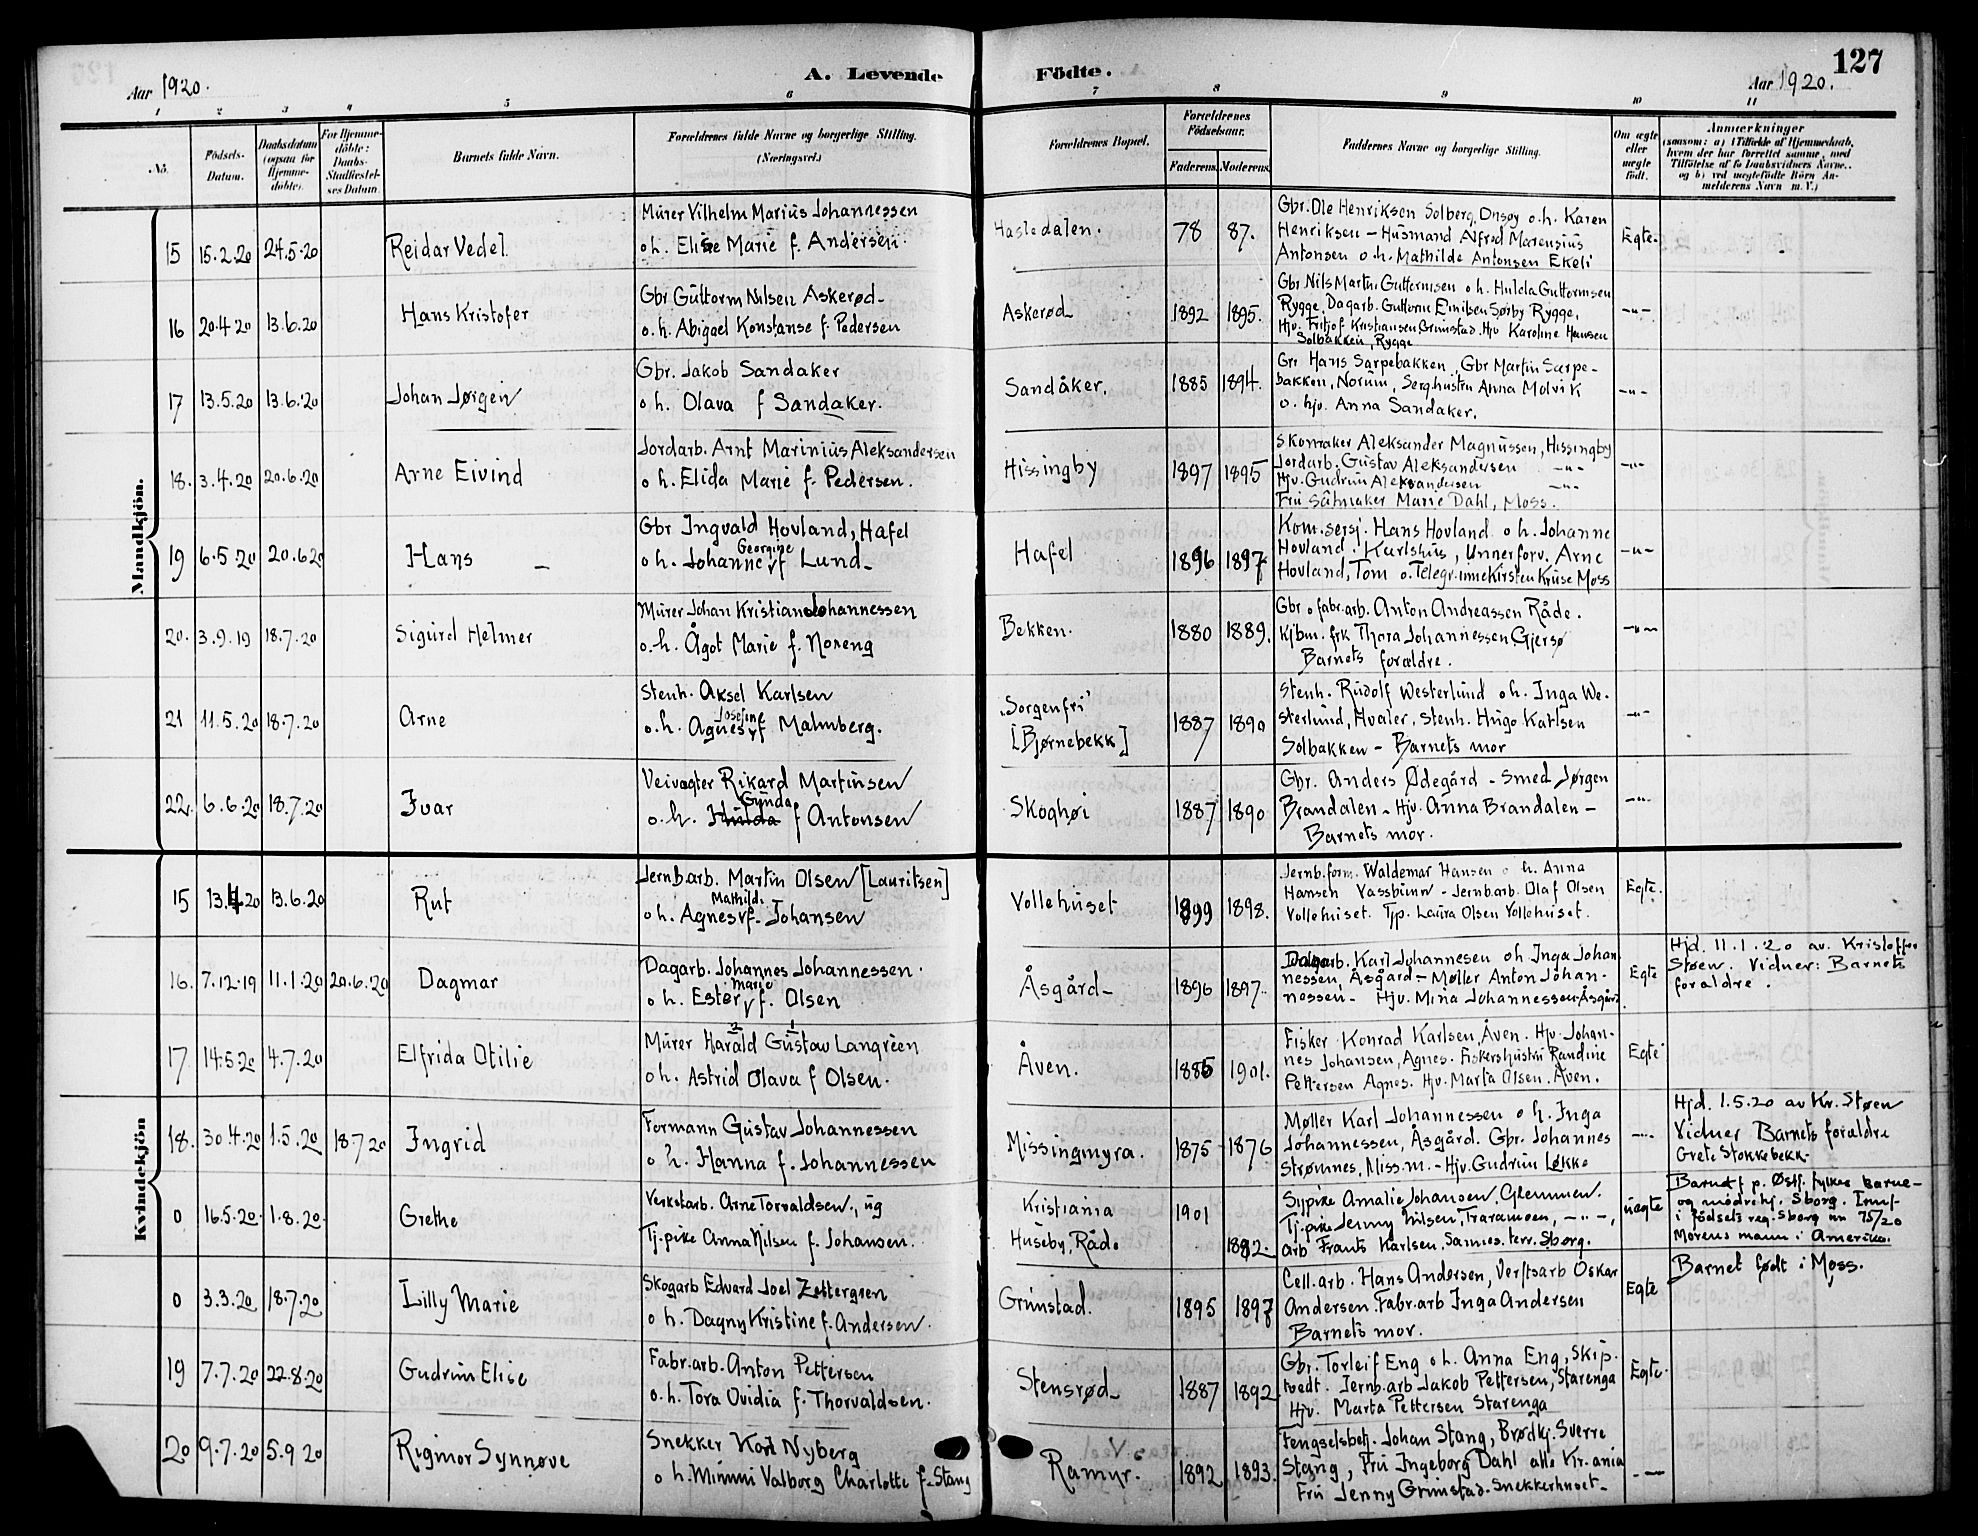 127
Aar 1920.
A. Levende Födte.
Aar 1920.
1 2 3 4 5 6 7 8 9 10 11
No.
Födsels-Datum.
Daabsdatum (ogsaa for Hjemmedöbte).
For Hjemmedöbte: Daabs-Stadfæstelses Datum.
Barnets fulde Navn.
Forældrenes fulde Navne og borgerlige Stilling. (Næringsvei.)
Forældrenes Bopæl.
Forældrenes Födselsaar.
Faderens. Moderens.
Faddernes Navne og borgerlige Stilling.
Om ægte eller uægte født.
Anmærkninger
(saasom: a) i Tilfælde af Hjemmedaab, hvem der har forrettet samme, med Tilföielse af to Daabsvidners Navne.. og b) ved uægtefödte Börn Anmelderens Navn m. V.)
Mandkjön.
15 15.2.20 24.5.20 Reidar Vedel
Murer Vilhelm Marius Johannessen
o h. Elise Marie f. Andersen.
Hasledalen. 78 87.
Gbr. Ole Henriksen Solberg, Onsøy o.h. Karen
Henriksen – Husmand Alfred Marensius
Antonsen o.h. Mathilde Antonsen Ekeli
Egte.
16 20.4 20 13.6.20 Hans Kristofer
Gbr Guttorm Nilsen Askerød
o.h. Abigael Konstanse f. Pedersen
Askerød 1892 1895.
Gbr Nils Martin Guttormsen o.h. Hulda Guttormsen
Rygge, Dagarb. Guttorm Emilsen Sørby Rygge.
Hjv. Fritjof Kristiansen Grimstad. Hjv Karoline Hansen
Solbakken, Rygge
-"-
17 13.5.20 13.6.20 Johan Jørgen
Gbr. Jakob Sandaker
o h. Olava f Sandaker.
Sandåker. 1885 1894.
Gr. Hans Sarpebakken, Gbr Martin Sarpe-
bakken, Norum, Serg.hustru Anna Molvik
o. hjv. Anna Sandaker.
-"-
18. 3.4.20 20.6.20 Arne Eivind
Jordarb. Arnt Marinius Aleksandersen
o h. Elida Marie f. Pedersen.
Hissingby 1897 1895
Skomaker Aleksander Magnussen, Hissingby
Jordarb. Gustav Aleksandersen -"-
Hjv. Gudrun Aleksandersen -"-
Fru Salmaker Marie Dahl, Moss.
-"-
19 6.5.20 20.6 20 Hans
Gbr Ingvald Hovland, Hafel
Georgine
o h. Johanne f Lund
Hafel 1896 1897
Kom.sersj. Hans Hovland o h. Johanne
Hovland. Karlshus, Unnerforv. Arne
Hovland, Tom o. Telegr.inne Kirsten Kruse Moss
-"-
20. 3.9.19 18.7.20 Sigurd Helmer
Murer Johan Kristian Johannessen
o.h. Ågot Marie f. Noreng
Bekken. 1880 1889.
Gbr o fabr.arb. Anton Andreassen Råde.
Kjbm. frk Thora Johannessen Gjersø
Barnets forældre.
-"-
21 11.5.20 18.7.20 Arne
Stenh. Aksel Karlsen
Josefine
o.h. Agnes f Malmberg.
"Sorgenfri"
[Bjørnebekk] 1887 1890
Stenh. Rudolf Westerlund o h. Inga We-
sterlund, Hvaler, Stenh. Hugo Karlsen
Solbakken – Barnets mor
-"-
22. 6.6.20 18.7.20 Ivar
Veivogter Rikard Martinsen
Gunda
o.h. Hulda f Antonsen
Skoghøi 1887 1890
Gbr. Anders Ødegård – Smed Jørgen
Brandalen – Hjv. Anna Brandalen –
Barnets mor.
-"-
Kvindekjön
15 13.4.20 13.6.20 Rut
Jernb.arb. Martin Olsen [Lauritsen]
Mathild.
o h. Agnes f. Johansen
Vollehuset 1899 1898.
Jernb.form. Waldemar Hansen o h. Anna
Hansen Vassbunn – Jernb.arb. Olaf Olsen
Vollehuset. Tjp. Laura Olsen Vollehuset.
Egte.
16. 7.12.19 11.1.20 20.6.20 Dagmar
Dagarb. Johannes Johannessen.
Marie
o h. Ester f. Olsen
Åsgård 1896 1897.
Dagarb. Karl Johannesen oh Inga Johan
nessen, Åsgård – Møller Anton Johan-
nessen – Hjv. Mina Johannessen Åsgård
Egte
Hjd. 11.1.20 av Kristoffer
Støen. Vidner: Barnets
forældre.
17 14.5.20 4.7.20 Elfrida Otilie
2 1
Murer Harald Gustav Langreen
o h. Astrid Olava f Olsen.
Åven. 1885 1901.
Fisker Konrad Karlsen, Åven. Hjv. Johan-
nes Johansen, Agnes. Fiskershustru Randine
Pettersen Agnes. Hjv. Marta Olsen. Åven.
Egte
18. 30.4.20 1.5.20 18.7 20 Ingrid
Formann Gustav Johannessen
o h. Hanna f. Johannessen
Missingmyra. 1875 1876
Møller Karl Johannessen o h. Inga
Johannessen, Åsgård. Gbr. Johannes
Strømnes, Miss.m. – Hjv. Gudrun Løkke
-"-
Hjd. 1.5.20 av Kr. Støen
Vidner Barnets forældre
Grete Stokkebekk
0 16.5.20. 1.8.20. Grethe
Verkstarb. Arne Torvaldsen., ug
Tj.pike Anna Nilsen f. Johansen.
Kristiania 1901
Huseby, Råde 1892.
Sypike Amalie Johansen, Glemmen.
Tj.pike Jenny Nilsen, Traramoen, -"-,
arb Frants Karlsen. Sannes. terr. Sborg.
uegte
Barnet f. p. Østf. fylkes barne-
og mødrehj. Sborg. Innf
i fødsels reg. Sborg nr 75/20
Morens mann i Amerika.
0 3.3.20 18.7.20 Lilly Marie
Skogarb Edvard Joel Zettergren
o h. Dagny Kristine f. Andersen.
Grimstad. 1895 1897
Cell.arb. Hans Andersen, Verftsarb Oskar
Andersen. Fabr.arb Inga Andersen
Barnets mor.
Egte
Barnet født i Moss.
19 7.7.20 22.8.20 Gudrun Elise
Fabr.arb. Anton Pettersen
o.h. Tora Ovidia f. Thorvaldsen.
Stensrød 1887 1892.
Gbr. Torleif Eng o h. Anna Eng, Skip-
tvedt. Jernb.arb Jakob Pettersen, Starenga
Hjv. Marta Pettersen Starenga
Egte.
20 9.7.20 5.9 20 Rigmor Synnøve
Snekker Karl Nyberg
o h. Mimmi Valborg Charlotte f. Stang
Ramyr. 1892 1893.
Fengselsbetj. Johan Stang, Brødkj. Sverre
Stang, Fru Ingeborg Dahl alle Kr.ania
Fru Jenny Grimstad. Snekkerhuset
-"-